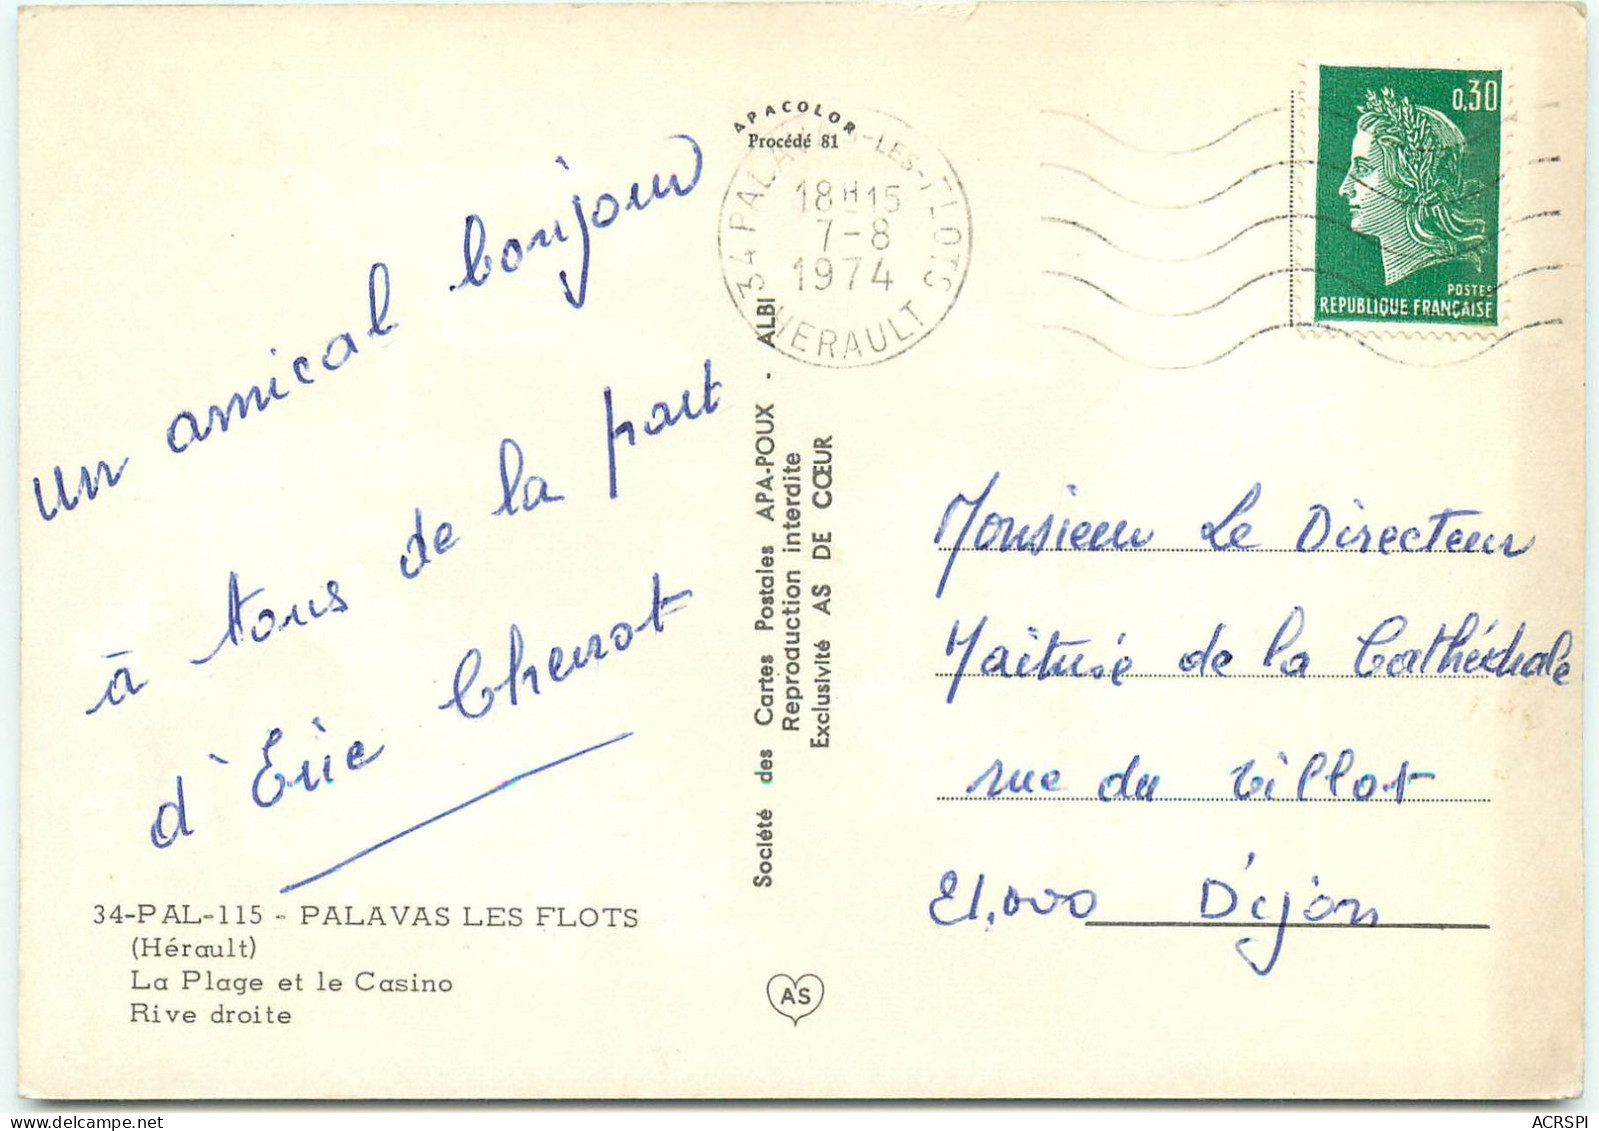 APACOLOR
Procédé 81
34 PALAVAS-LES-FLOTS
18H15
7-8
1974
HERAULT
0,30
POSTES
REPUBLIQUE FRANÇAISE
un amical bonjour
à tous de la part
d'Eric Chenot
34-PAL-115 - PALAVAS LES FLOTS
(Hérault)
La Plage et le Casino
Rive droite
Société des Cartes Postales APA-POUX - ALBI
Reproduction interdite
Exclusivité AS DE CŒUR
AS
Monsieur Le Directeur
Maîtrise de la Cathédrale
rue du tillot
21.000 Dijon
ACRSPI